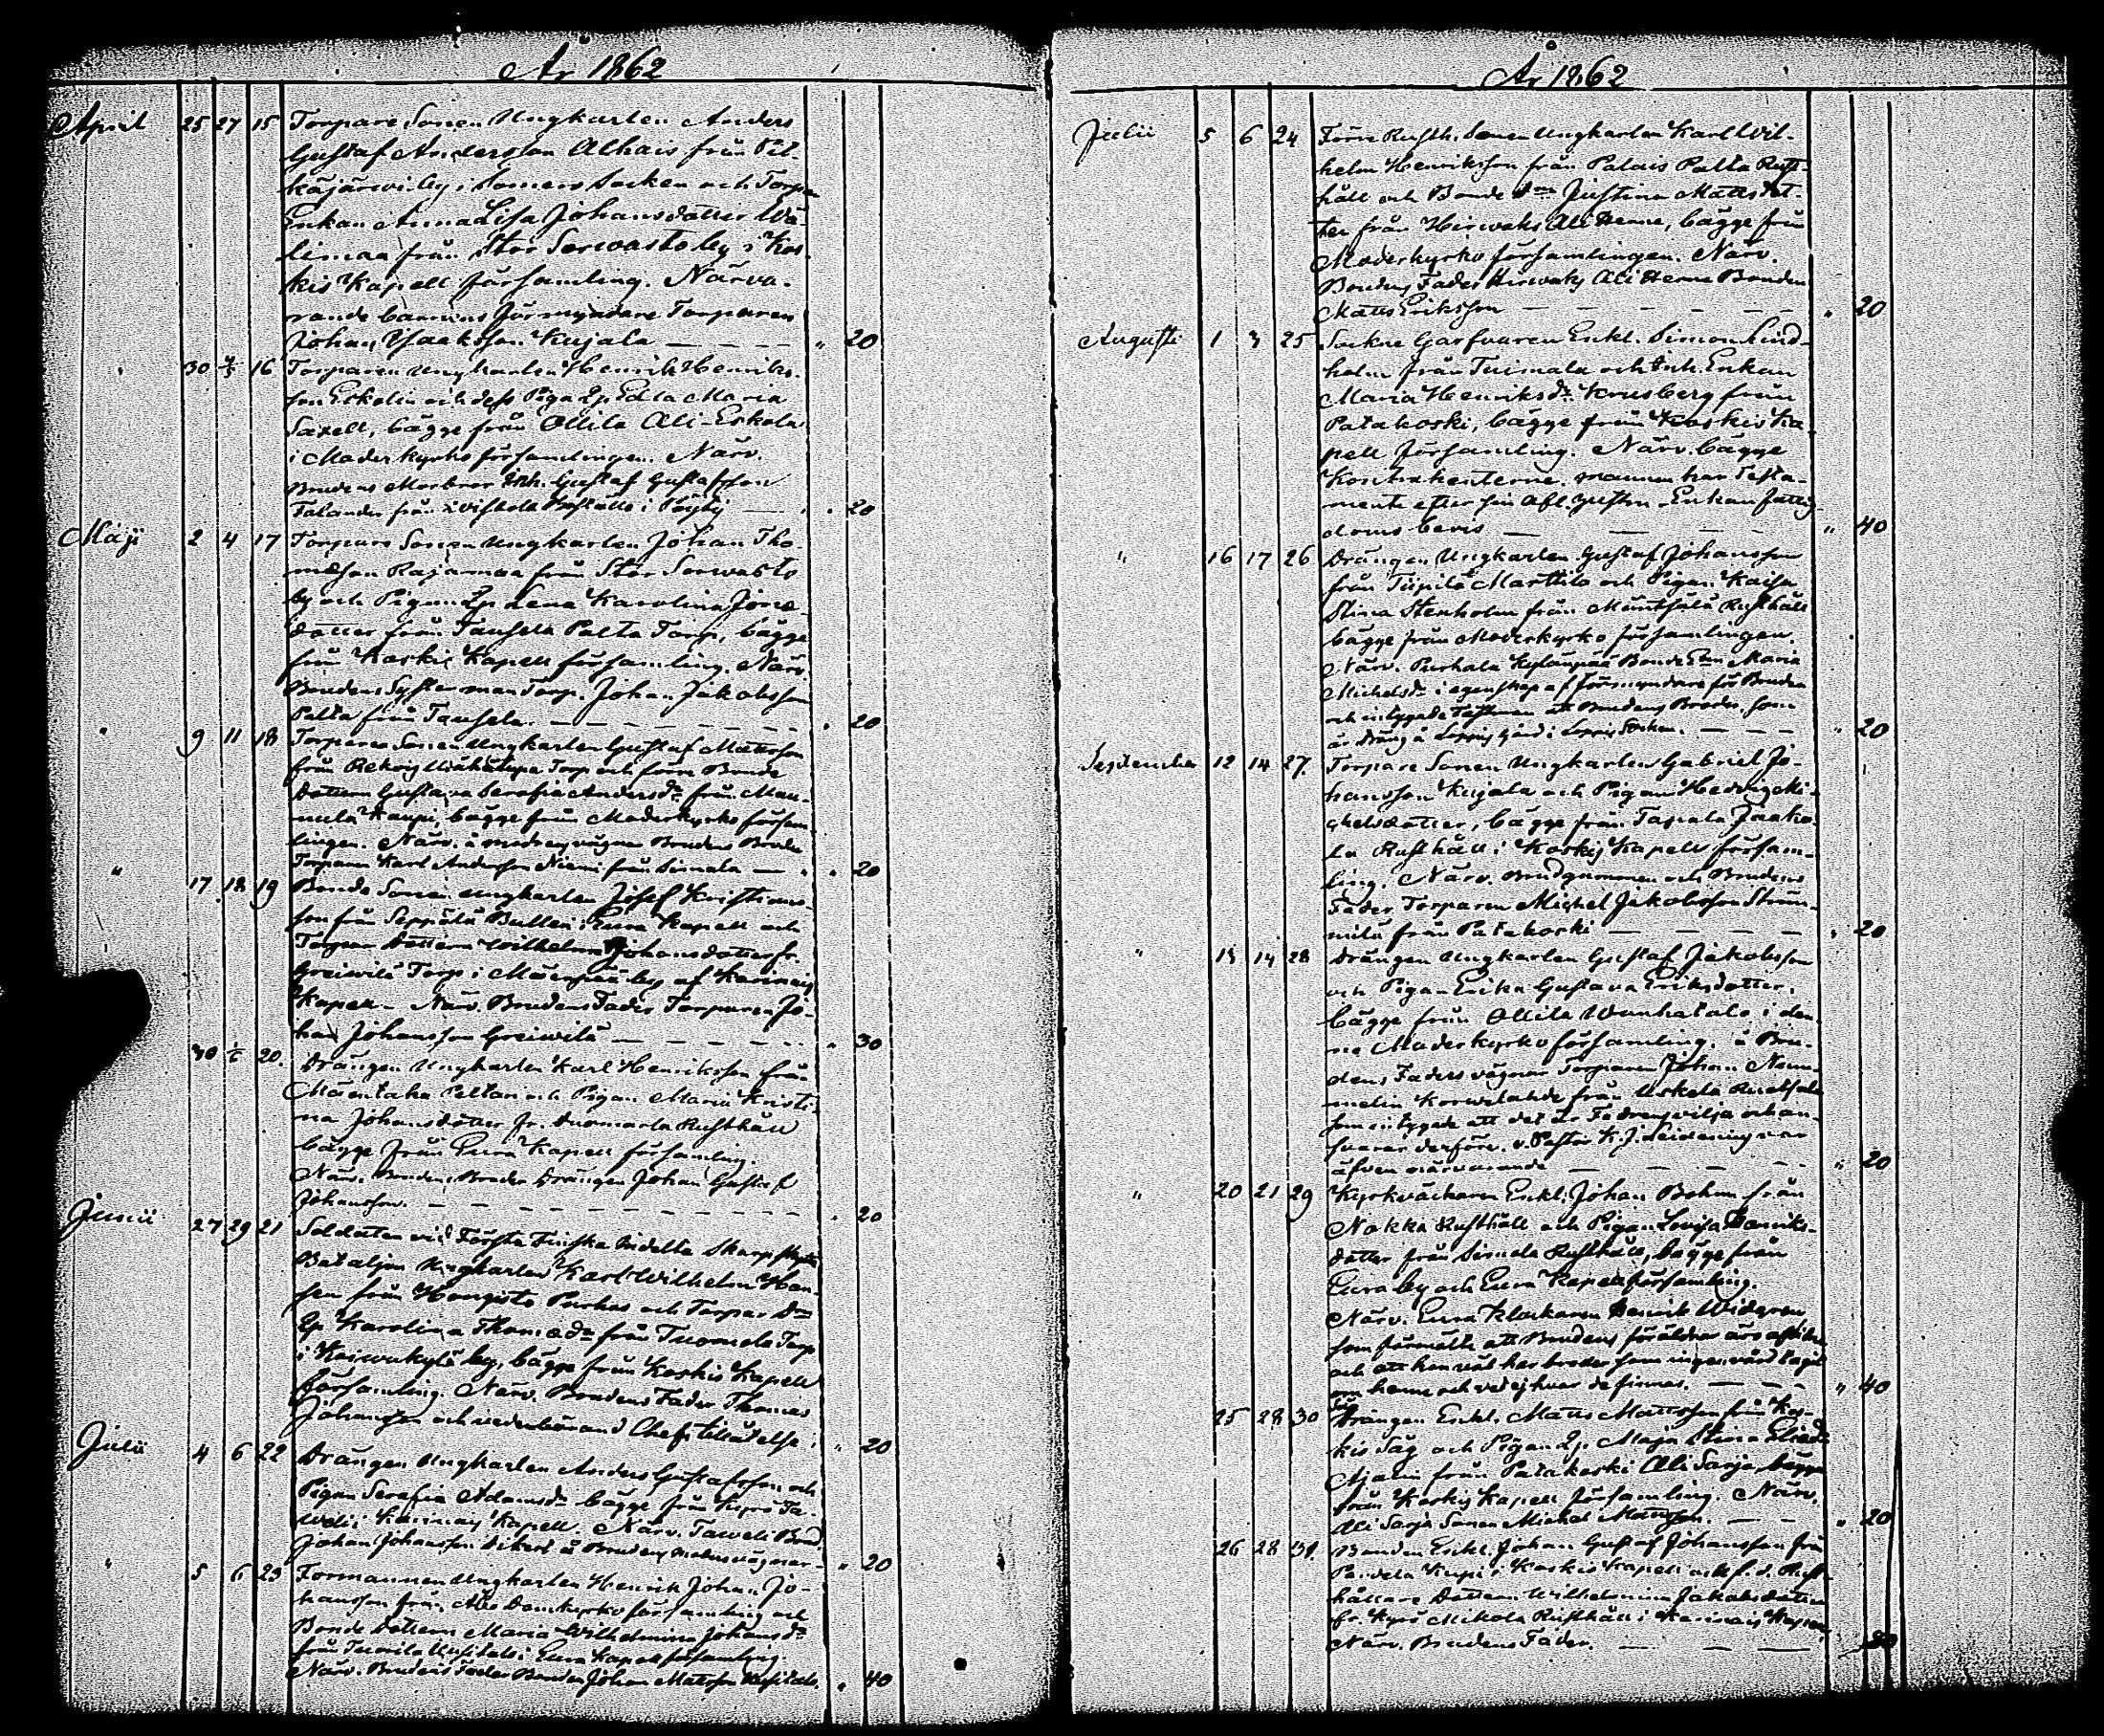 År 1862
April 25 27 15 Torpare Sonen Ungkarlen Anders
Gustaf Andersson Alhais från Pit-
käjärwi by i Somero Socken och Torpare
Enkan Anna Lisa Johansdotter Wä-
limaa från Stor Sorwasto by i Kos-
kis Kapell församling. Närva-
rande barnens förmyndare Torparen
Johan Isaaksson Kujala — — — " 20
" 30 4/5 16 Torparen Ungkarlen Henrik Henriks-
son Erkola och dess Piga Ep. Edla Maria
Saxell, bägge från Ollila Ali-Erkola
i Moderkyrko församlingen. Närv.
Brudens Morbror Inh. Gustaf Gustafsson
Talander från i Pöytis — " 20
Maji 2 4 17 Torpare Sonen Ungkarlen Johan Tho-
masson Rajamaa från Stor Sorwasto
by och Pigan Ep Lena Karolina Jöns-
dotter från Tausela Palta Torp, bägge
från Koskis Kapell församling. Närv.
Brudens Systerman Torp. Johan Jakobsson
Palta från Tausela. — — — " 20
" 9 11 18 Torpare Sonen Ungkarlen Gustaf Mattsson
från Torp och förre Bonde
Dottern Gustava Serafia Andersdr från Mau-
nula Kaupi, bägge från Moderkyrko försam-
lingen. Närv. å modrens vägnar Brudens Broder
Torparen Karl Andersson Niemi från Simala — " 20
" 17 18 19 Bonde Sonen Ungkarlen Josef Kristians-
son från Seppälä Bulleri i Eura Kapell och
Torpare Dottern Wilhelmina Johansdotter fr.
Greiwilä Torp i by af Karinais
Kapell - Närv. Brudens Fader Torparen Jo-
han Johansson Greiwilä — — — " 30
30 1/6 20. Drängen Ungkarlen Karl Henriksson från
Mäentaka Peltari och Pigan Maria Kristi-
na Johansdotter fr. Rusthåll
bägge från Eura Kapell församling.
Närv. Brudens Broder Drängen Johan Gustaf
Johansson. — — — " 20
Junii 27 29 21 Soldaten vid Första Finska Indelta Skarpskytte
Bataljon Ungkarlen Karl Wilhelm Han-
sen från Hongisto Purhas och Torpar Dr
Ep. Karolina Thomasdr från Tuomola Torp
i Koiwukylä by, bägge från Koskis Kapell
församling. Närv. Brudens Fader Thomas
Johansson och vederbörand Chefs tillåtelse, " 20
Julii 4 6 22 Drängen Ungkarlen Anders Gustafsson och
Pigan Serafia Adamsdr bägge från Kyrö Ta-
weli i Karinais Kapell. Närv. Taweli Bond
Johan Johansson å Brudens moders vägnar — " 20
" 5 6 23 Formannen Ungkarlen Henrik Johan Jo-
hansson från Åbo Domkyrko församling och
Bonde Dottern Maria Wilhelmina Johansdr
från Tuorila Uusitalo i Eura Kapell församling.
Närv. Brudens Fader Bonden Johan Matsson Uusitalo. " 40
År 1862
Julii 5 6 24 Förre Rusth. Sonen Ungkarlen Karl Wil-
helm Henriksson från Palais Palta Rust-
håll och Bonde Dr Justina Mattsdot-
ter från Hirwaks Ali Henne, bägge från
Moderkyrko församlingen. Närv.
Brudens Fader Hirwaks Ali Henne Bonden
Matts Eriksson — — — " 20
Augusti 1 3 25 Sockne Garfvaren Enkl. Simon Lind-
holm från Tuimala och Inh. Enkan
Maria Henriksdr Krusberg från
Patakoski, bägge från Koskis Ka-
pell församling. Närv. bägge
Kontrahenterne. mannen har Testa-
mente efter sin afl. hustru - Enkan fattig-
doms bevis — — — " 40
" 16 17 26 Drängen Ungkarlen Gustaf Johansson
från Tiipilä Marttila och Pigan Kaisa
Stina Stenholm från Rusthåll
bägge från Moderkyrko församlingen.
Närv. Purhala Kylänpää Bonde Enkn Maria
Michelsdr i egenskap af förmyndare för Bruden
och intygade Testamen att Brudens Broder, som
är dräng å Loppis gård i Loppis Socken. — — — " 20
September 12 14 27. Torpare Sonen Ungkarlen Gabriel Jo-
hansson Kujala och Pigan Hedvig Mi-
chelsdotter, bägge från Tapala Jaako-
la Rusthåll i Koskis Kapell försam-
ling. Närv. Brudgummen och Brudens
Fader Torparen Michel Jakobsson Ström-
milä från Patakoski — — — " 20
" 13 14 28 Drängen Ungkarlen Gustaf Jakobsson
och Pigan Erika Gustava Eriksdotter,
bägge från Ollila Wanhatalo i den-
na Moderkyrko församling. å Bru-
dens Faders vägnar Torparen Johan Num-
melin Korwelande från Uskela
som intygade att det är Fadrens vilja och an-
svarar derföre. v. Pastor K. J. Leidenius var
äfven närvarande — — — " 20
" 20 21 29 Kyrkväktaren Enkl. Johan Bohm från
Nokka Rusthåll och Pigan Lovisa Henriks-
dotter från Simola Rusthåll, bägge från
Eura by och Eura Kapell församling.
Närv. Eura Klockaren Henrik Widgren,
som förmälte att Brudens föräldrar äro aflidne
och att hon väl har bröder som ingen vård tagit
om henne och vet ej hvar de finnas. — — — " 40
25 28 30 Drängen Enkl. Matts Mattsson från Kos-
kis Såg och Pigan Ep. Maja Stina Eliædr
från Patakoski Ali Sarja, bägge
från Koskis Kapell församling. Närv.
Ali Sarja Sonen Michel Mattsson. — — " 20
26 28 31. Bonden Enkl. Johan Gustaf Johansson från
Pandela Kupi i Koskis Kapell och f.d. Rust-
hållare Dottern Wilhelmina Jakobsdotter
fr. Kyrö Mikola Rusthåll i Karinais Kapell.
Närv. Brudens Fader. — — —